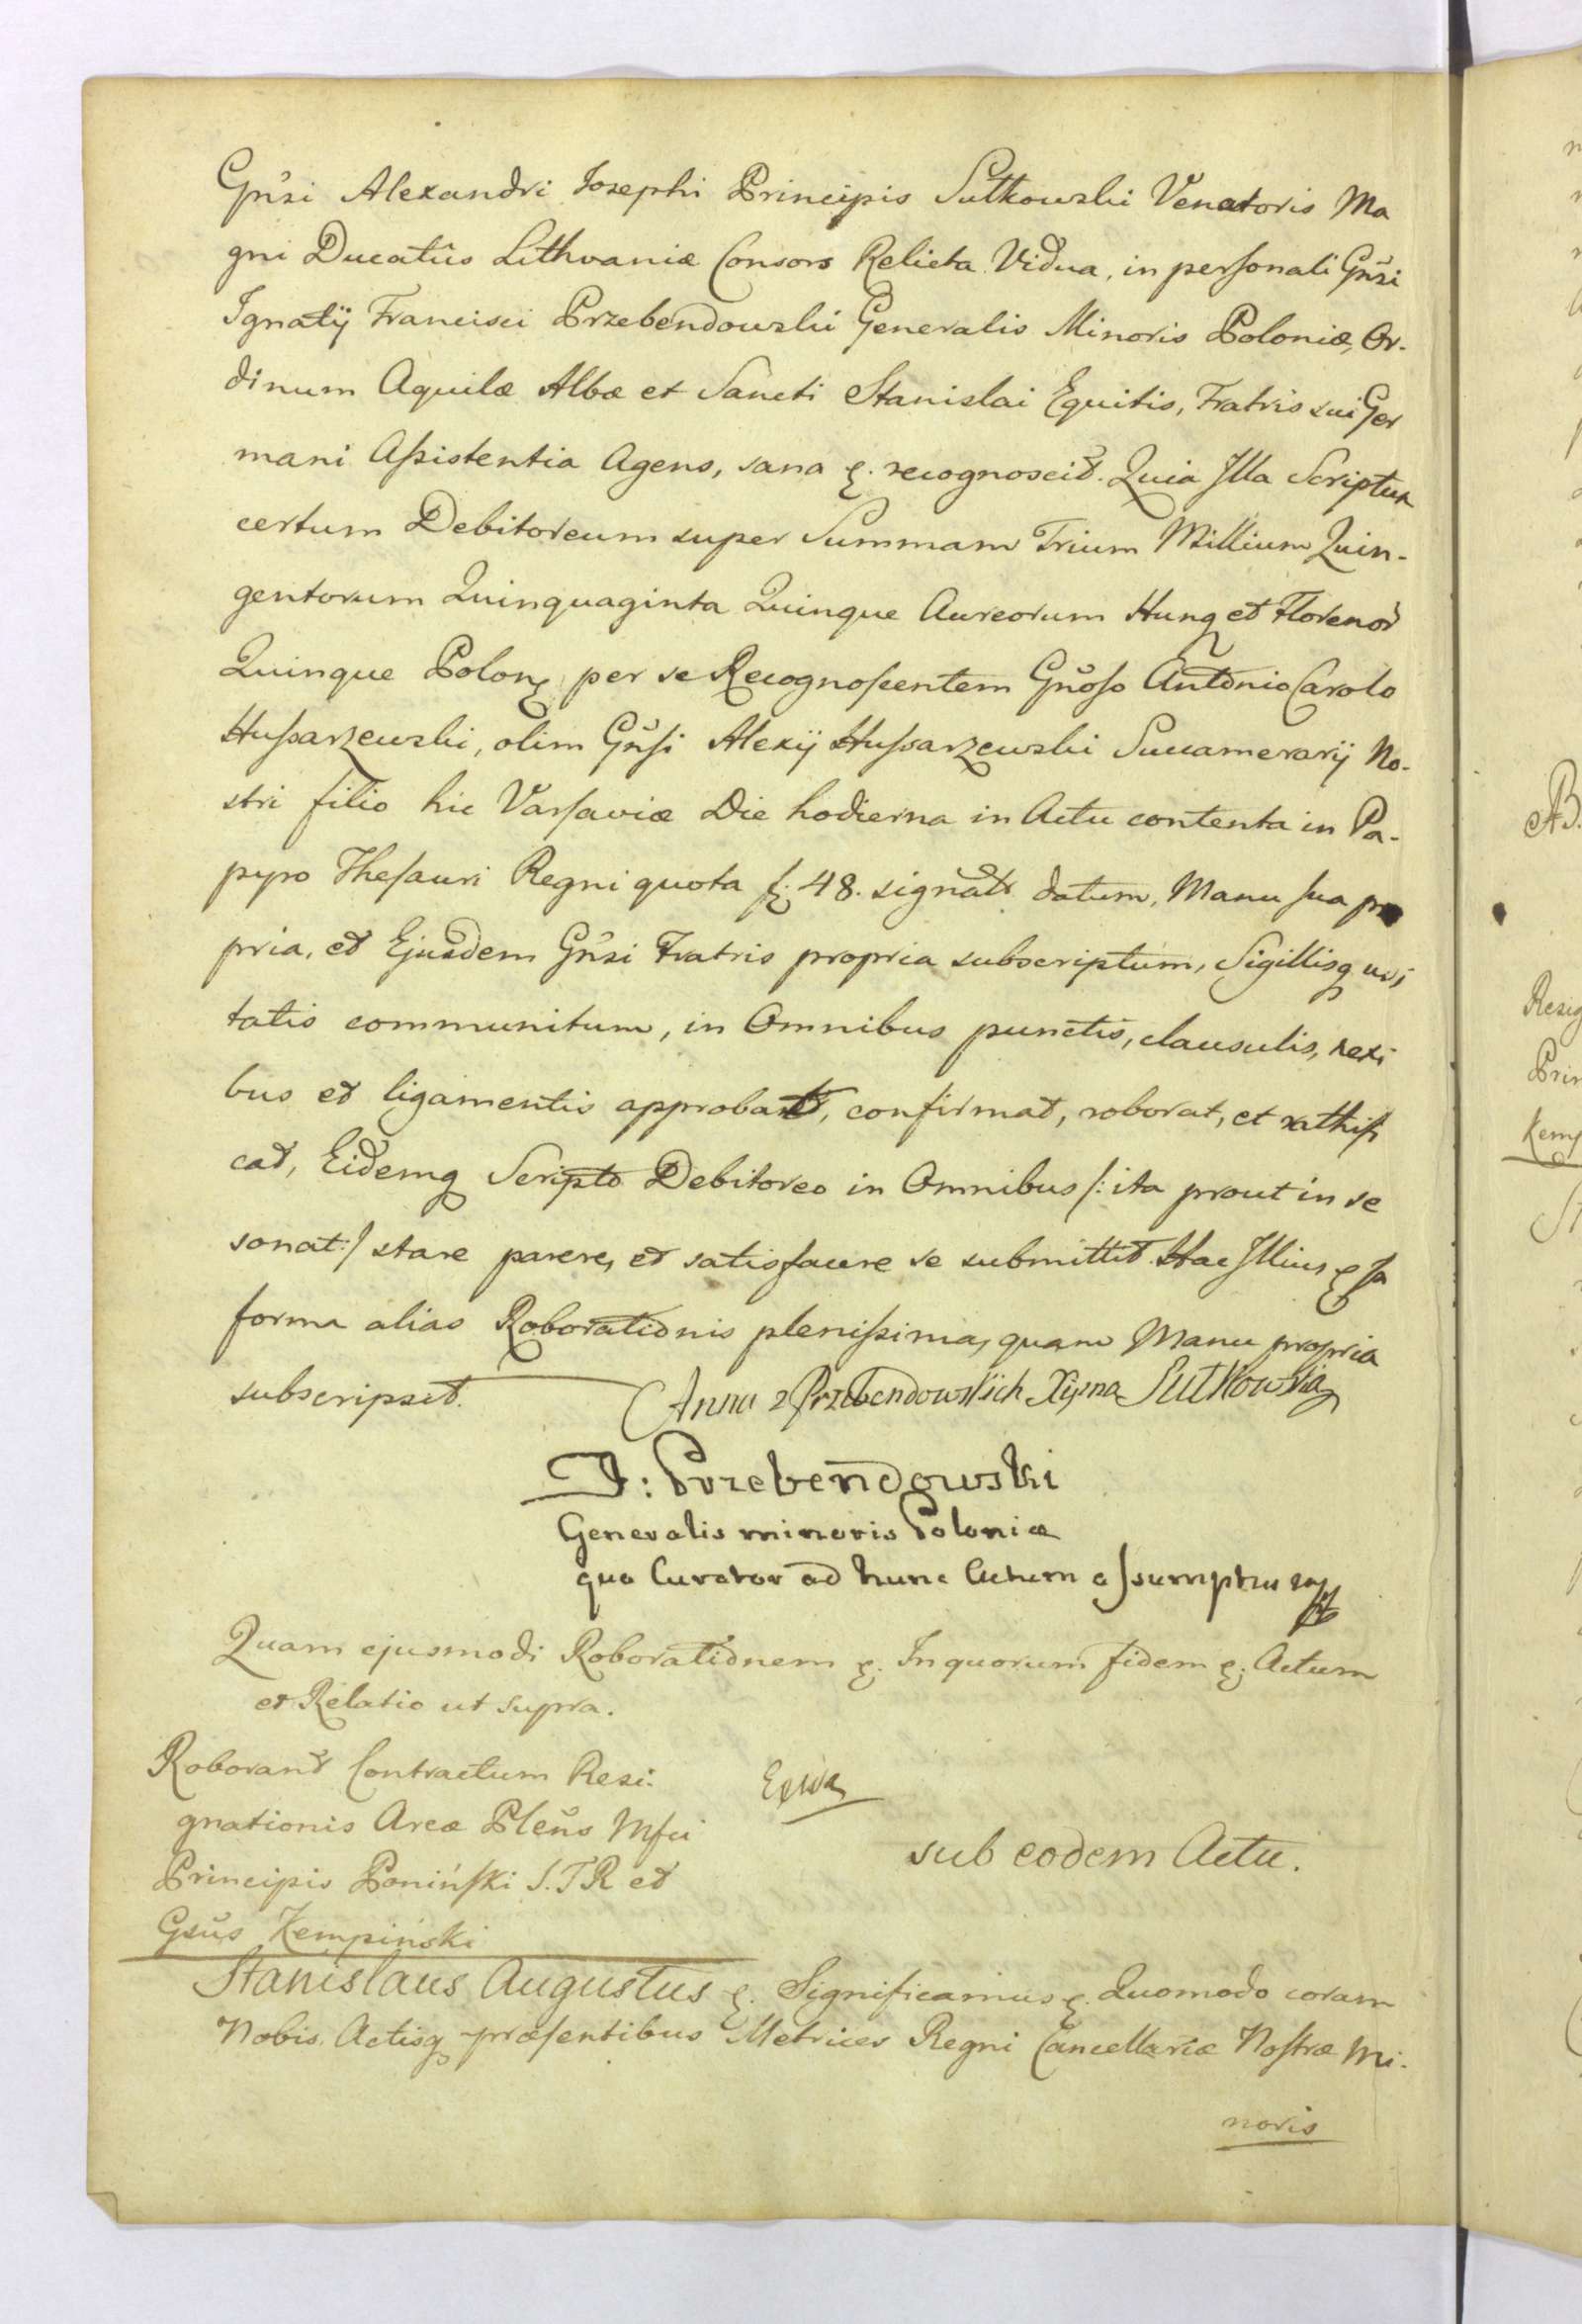 Gnsi Alexandri Josephi Principis Sulkowski Venatoris Ma
gni Ducatûs Lithvaniæ Consors Relicta Vidua, in personali Gnsi
Ignatij Francisci Przebendowski Generalis Minoris Poloniæ, Or-
dinum Aquilæ Albæ et Sancti Stanislai Equitis, Fratris sui Ger
mani Assistentia Agens, sana &. recognoscit. Quia Illa Scriptum
certum Debitoreum super Summam Trium Millium Quin-
gentorum Quinquaginta Quinque Aureorum Hung et Florenor
Quinque Polon, per se Recognoscentem Gnoso Antonio Carolo
Hussarzewski, olim Gnsi Alexij Hussarzewski Succamerarij No-
stri filio hic Varsaviæ Die hodierna in Actu contenta in Pa-
pyro Thesauri Regni quota f. 48. signatt datum, Manu sua pro
pria, et Ejusdem Gnsi Fratris propria subscriptum, Sigillisq usi
tatis communitum, in Omnibus punctis, clausulis, nexi
bus et ligamentis approbat, confirmat, roborat, et rathifi
cat, Eidemq Scripto Debitoreo in Omnibus /: ita prout in se
sonat :/ stare parere, et satisfacere se submittit. Hac Illius &sa
forma alias Roborationis plenissima, quam Manu propria
subscripsit. Anna z Przebendowskich Xiężna Sułkowska
I: Przebendowski
Generalis minoris Poloniæ
qua Curator ad hunc Actum assumptus
Quam ejusmodi Roborationem &. In quorum fidem &. Actum
et Relatio ut supra.
Roborand Contractum Resi-
gnationis Areæ Plens Mfci
Principis Poniński S.T.R et
Gsus Kempinski
sub eodem Actu.
Stanislaus Augustus &. Significamus &. Quomodo coram
Nobis Actisq præsentibus Metrices Regni Cancellariæ Nostræ Mi-
noris